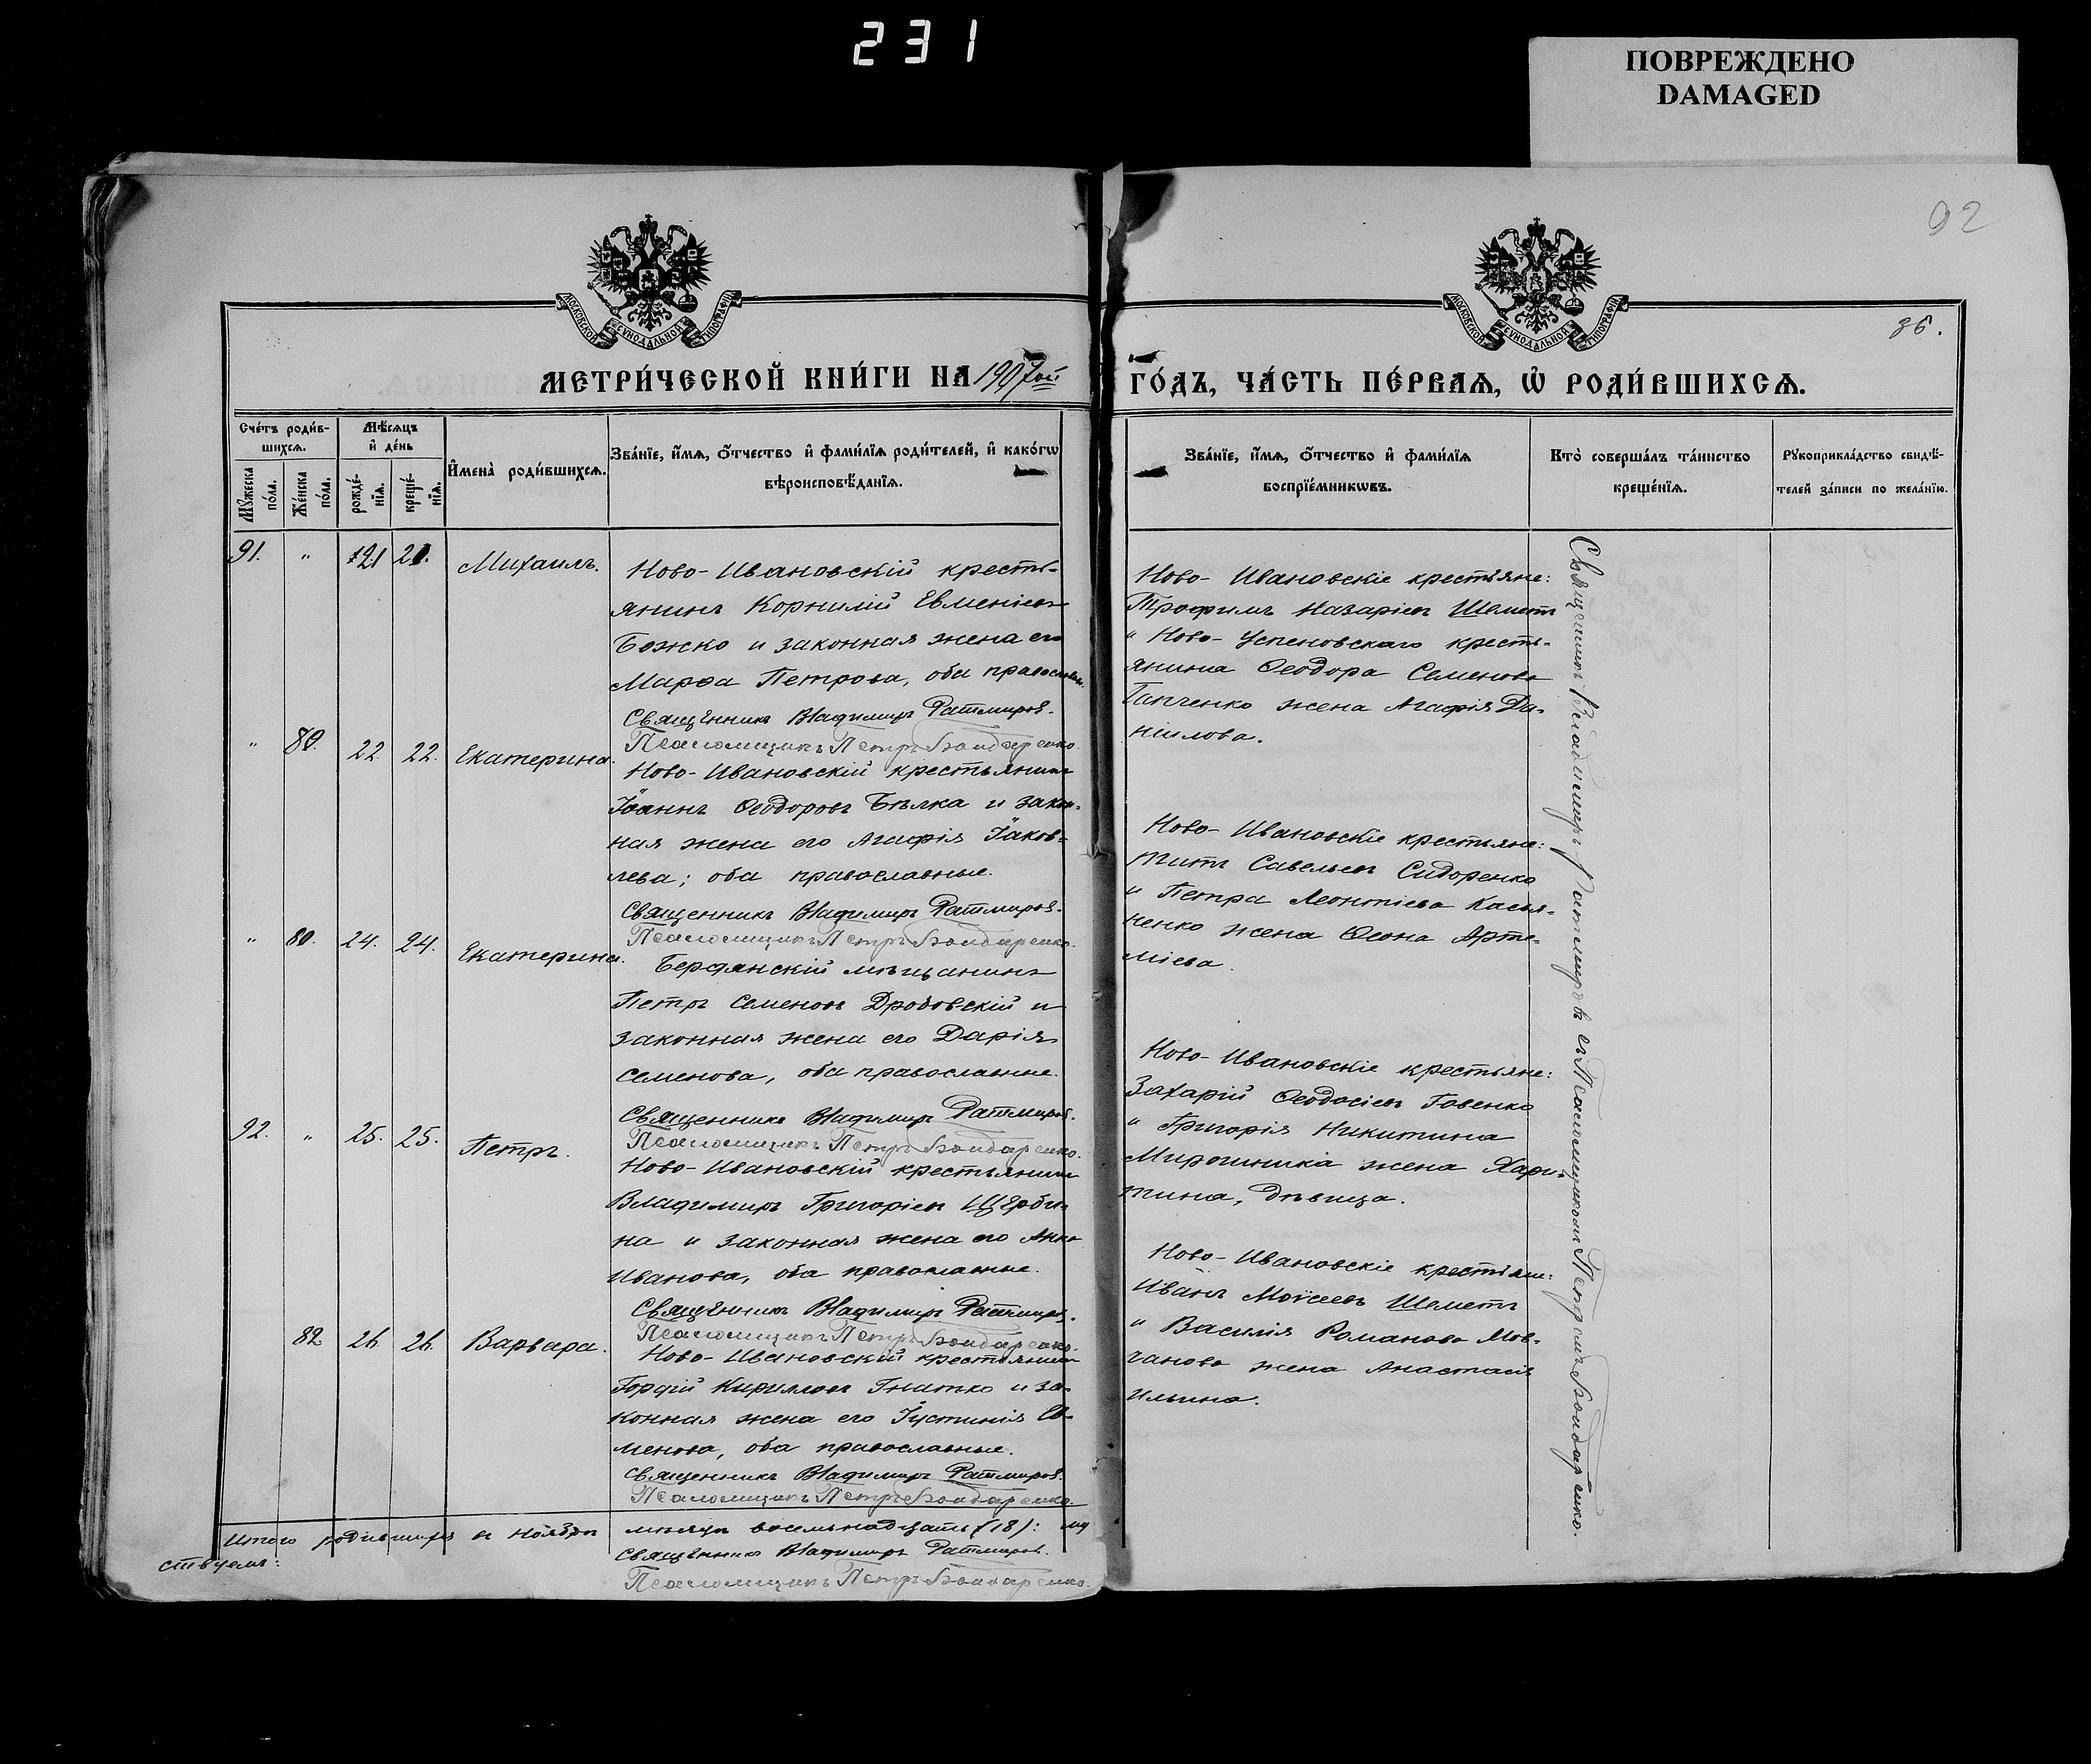 231
ПОВРЕЖДЕНО
DAMAGED
92
МОСКОВСКОЙ СѴНОДАЛЬНОЙ ТИПОГРАФІИ
МОСКОВСКОЙ СѴНОДАЛЬНОЙ ТИПОГРАФІИ
36.
МЕТРИ́ЧЕСКОЙ КНИ́ГИ НА 1907ой
ГО́ДЪ, ЧА́СТЬ ПЕ́РВАѦ, Ѡ҆ РОДИ́ВШИХСѦ.
Сче́тъ роди́в-
шихсѧ.
Мꙋ́жеска по́ла.
Же́нска по́ла.
Мѣ́сѧцъ
и҆ де́нь
рожде́-
нїѧ.
креще́-
нїѧ.
И҆мена̀ роди́вшихсѧ.
Зва́нїе, и҆́мѧ, ѻ҆́тчество и҆ фами́лїѧ роди́телей, и҆ како́гѡ
вѣроисповѣ́данїѧ.
Зва́нїе, и҆́мѧ, ѻ҆́тчество и҆ фами́лїѧ
воспрїе́мникѡвъ.
Кто̀ соверша́лъ та́инство
креще́нїѧ.
Рꙋкоприкла́дство свидѣ́-
телей за́писи по жела́нїю.
91. " 21 21. Михаилъ.
Ново-Ивановскій кресть-
янинъ Корнилій Евменіевъ
Божко и законная жена его
Марѳа Петрова, оба православн.
Священникъ Владимиръ Ратмировъ.
Псаломщикъ Петръ Бондаренко.
Ново-Ивановскіе крестьяне:
Трофимъ Назаріевъ Шеметъ
и Ново-Успеновскаго кресть-
янина Ѳеодора Семенова
Гапченко жена Агафія Да-
ниилова.
" 80. 22. 22. Екатерина.
Ново-Ивановскій крестьянинъ
Іоаннъ Ѳеодоровъ Бѣлка и закон-
ная жена его Агафія Іаков-
лева; оба православные.
Священникъ Владимиръ Ратмировъ.
Псаломщикъ Петръ Бондаренко.
Ново-Ивановскіе крестьяне:
Титъ Савельевъ Сидоренко
и Петра Леонтіева Касья-
ненко жена Ѳеона Арте-
міева.
" 80. 24. 24. Екатерина.
Бердянскій мѣщанинъ
Петръ Семеновъ Дробовскій и
законная жена его Дарія
Семенова, оба православные.
Священникъ Владимиръ Ратмировъ.
Псаломщикъ Петръ Бондаренко.
Ново-Ивановскіе крестьяне:
Захарій Ѳеодосіевъ Говенко
и Григорія Никитина
Мирошника жена Хари-
тина, дѣвица.
92. " 25. 25. Петръ.
Ново-Ивановскій крестьянинъ
Владимиръ Григоріевъ Щерби-
на и законная жена его Анна
Иванова, оба православные.
Священникъ Владимиръ Ратмировъ.
Псаломщикъ Петръ Бондаренко.
Ново-Ивановскіе крестьяне:
Иванъ Моисеевъ Шеметъ
и Василія Романова Мов-
чанова жена Анастасія
Ильина.
82. 26. 26. Варвара.
Ново-Ивановскій крестьянинъ
Гордій Кирилловъ Гнатко и за-
конная жена его Іустинія Ев-
менова, оба православные.
Священникъ Владимиръ Ратмировъ.
Псаломщикъ Петръ Бондаренко.
Священникъ Владимиръ Ратмировъ съ Псаломщикомъ Петромъ Бондаренко.
Итого родившихся въ Ноябрѣ мѣсяцѣ восемнадцать (18):
ствуемъ:
Священникъ Владимиръ Ратмировъ.
Псаломщикъ Петръ Бондаренко.